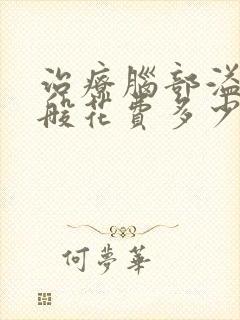 治療腦部溢
般花費多少
何夢華